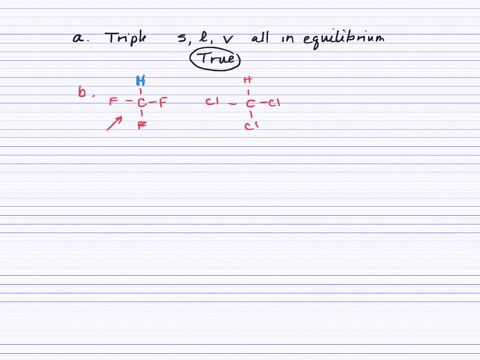 a. Triple s, l, v all in equilibrium
True
b. H H
F - C - F Cl - C - Cl
F Cl